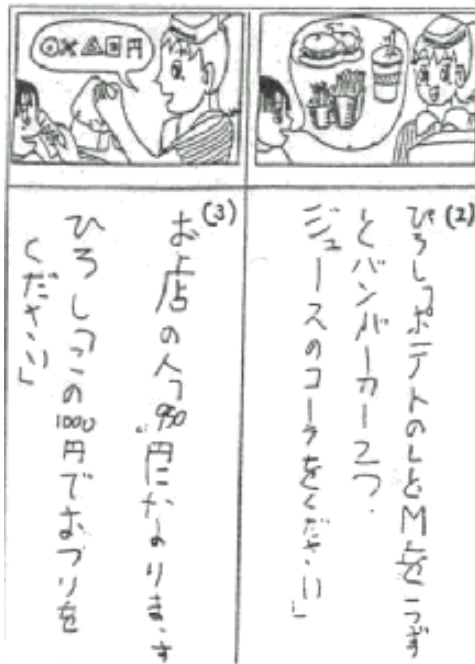 (2)
ひろし「ポテトのLとMを一つず
とバンバーガー2つ.
ジュースのコーラをください」
○×△□円
(3)
お店の人「950円になります
ひろし「この1000円でおつりを
ください」